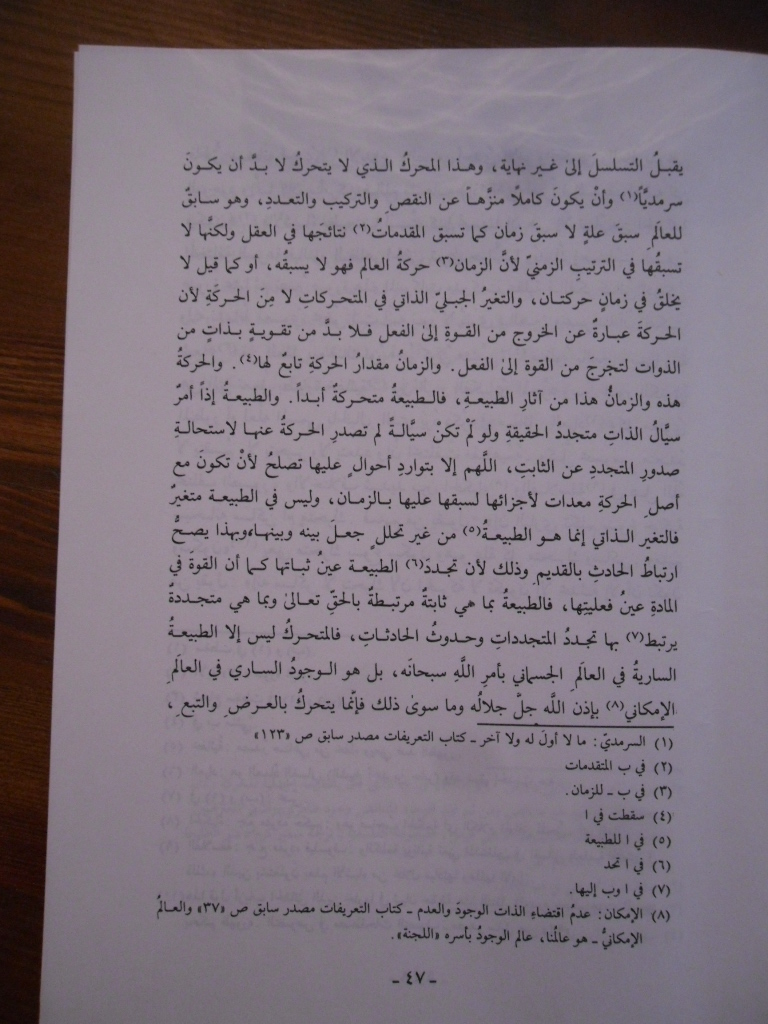 يقبلُ التسلسلَ إلىٰ غير نهاية، وهذا المحركُ الذي لا يتحركُ لا بدَّ أن يكونَ
سرمديَّاً(١) وأنْ يكونَ كاملًا منزَّهاً عن النقصِ والتركيبِ والتعددِ، وهو سابقٌ
للعالَمِ سبقَ علةٍ لا سبقَ زمان كما تسبق المقدماتُ(٢) نتائجَها في العقل ولكنَّها لا
تسبقُها في الترتيبِ الزمنيّ لأنَّ الزمان(٣) حركةُ العالم فهو لا يسبقُه، أو كما قيل لا
يخلقُ في زمانٍ حركتان، والتغيرُ الجبليّ الذاتي في المتحركاتِ لا مِنَ الحركَةِ لأن
الحركةَ عبارةٌ عن الخروج من القوةِ إلىٰ الفعل فلا بدَّ من تقويةٍ بذاتٍ من
الذوات لتخرجَ من القوة إلىٰ الفعل. والزمانُ مقدارُ الحركةِ تابعٌ لها(٤). والحركةُ
هذه والزمانُ هذا من آثارِ الطبيعةِ، فالطبيعةُ متحركةٌ أبداً. والطبيعةُ إذاً أمرٌ
سيَّالُ الذاتِ متجددُ الحقيقةِ ولو لَمْ تكنْ سيَّالةً لم تصدرِ الحركةُ عنها لاستحالةِ
صدورِ المتجددِ عن الثابتِ، اللَّهم إلا بتواردِ أحوالٍ عليها تصلحُ لأنْ تكونَ مع
أصلِ الحركةِ معدات لأجزائها لسبقها عليها بالزمان، وليس في الطبيعة متغيرٌ
فالتغير الذاتي إنما هو الطبيعةُ(٥) من غير تخللِ جعلَ بينه وبينها، وبهذا يصحُّ
ارتباطُ الحادثِ بالقديمِ وذلك لأن تجددَ(٦) الطبيعة عينُ ثباتها كما أن القوةَ في
المادةِ عينُ فعليتِها، فالطبيعةُ بما هي ثابتةٌ مرتبطةٌ بالحقّ تعالىٰ وبما هي متجددةٌ
يرتبط(٧) بها تجددُ المتجدداتِ وحدوثُ الحادثاتِ، فالمتحركُ ليس إلا الطبيعةُ
الساريةُ في العالَمِ الجسماني بأمرِ اللَّهِ سبحانَه، بل هو الوجودُ الساري في العالَمِ
الإمكاني(٨) بإذن اللَّه جلَّ جلالُه وما سوىٰ ذلك فإنَّما يتحركُ بالعرضِ والتبعِ،
(١) السرمديّ: ما لا أولَ له ولا آخر ـ كتاب التعريفات مصدر سابق ص «١٢٣»
(٢) في ب المتقدمات
(٣) في ب ـ للزمان.
(٤) سقطت في ا
(٥) في ا للطبيعة
(٦) في ا تحد
(٧) في ا وب إليها.
(٨) الإمكان: عدمُ اقتضاءِ الذات الوجودَ والعدم ـ كتاب التعريفات مصدر سابق ص «٣٧» والعالمُ
الإمكانيُّ ـ هو عالمُنا، عالم الوجودُ بأسره «اللجنة».
ـ ٤٧ ـ